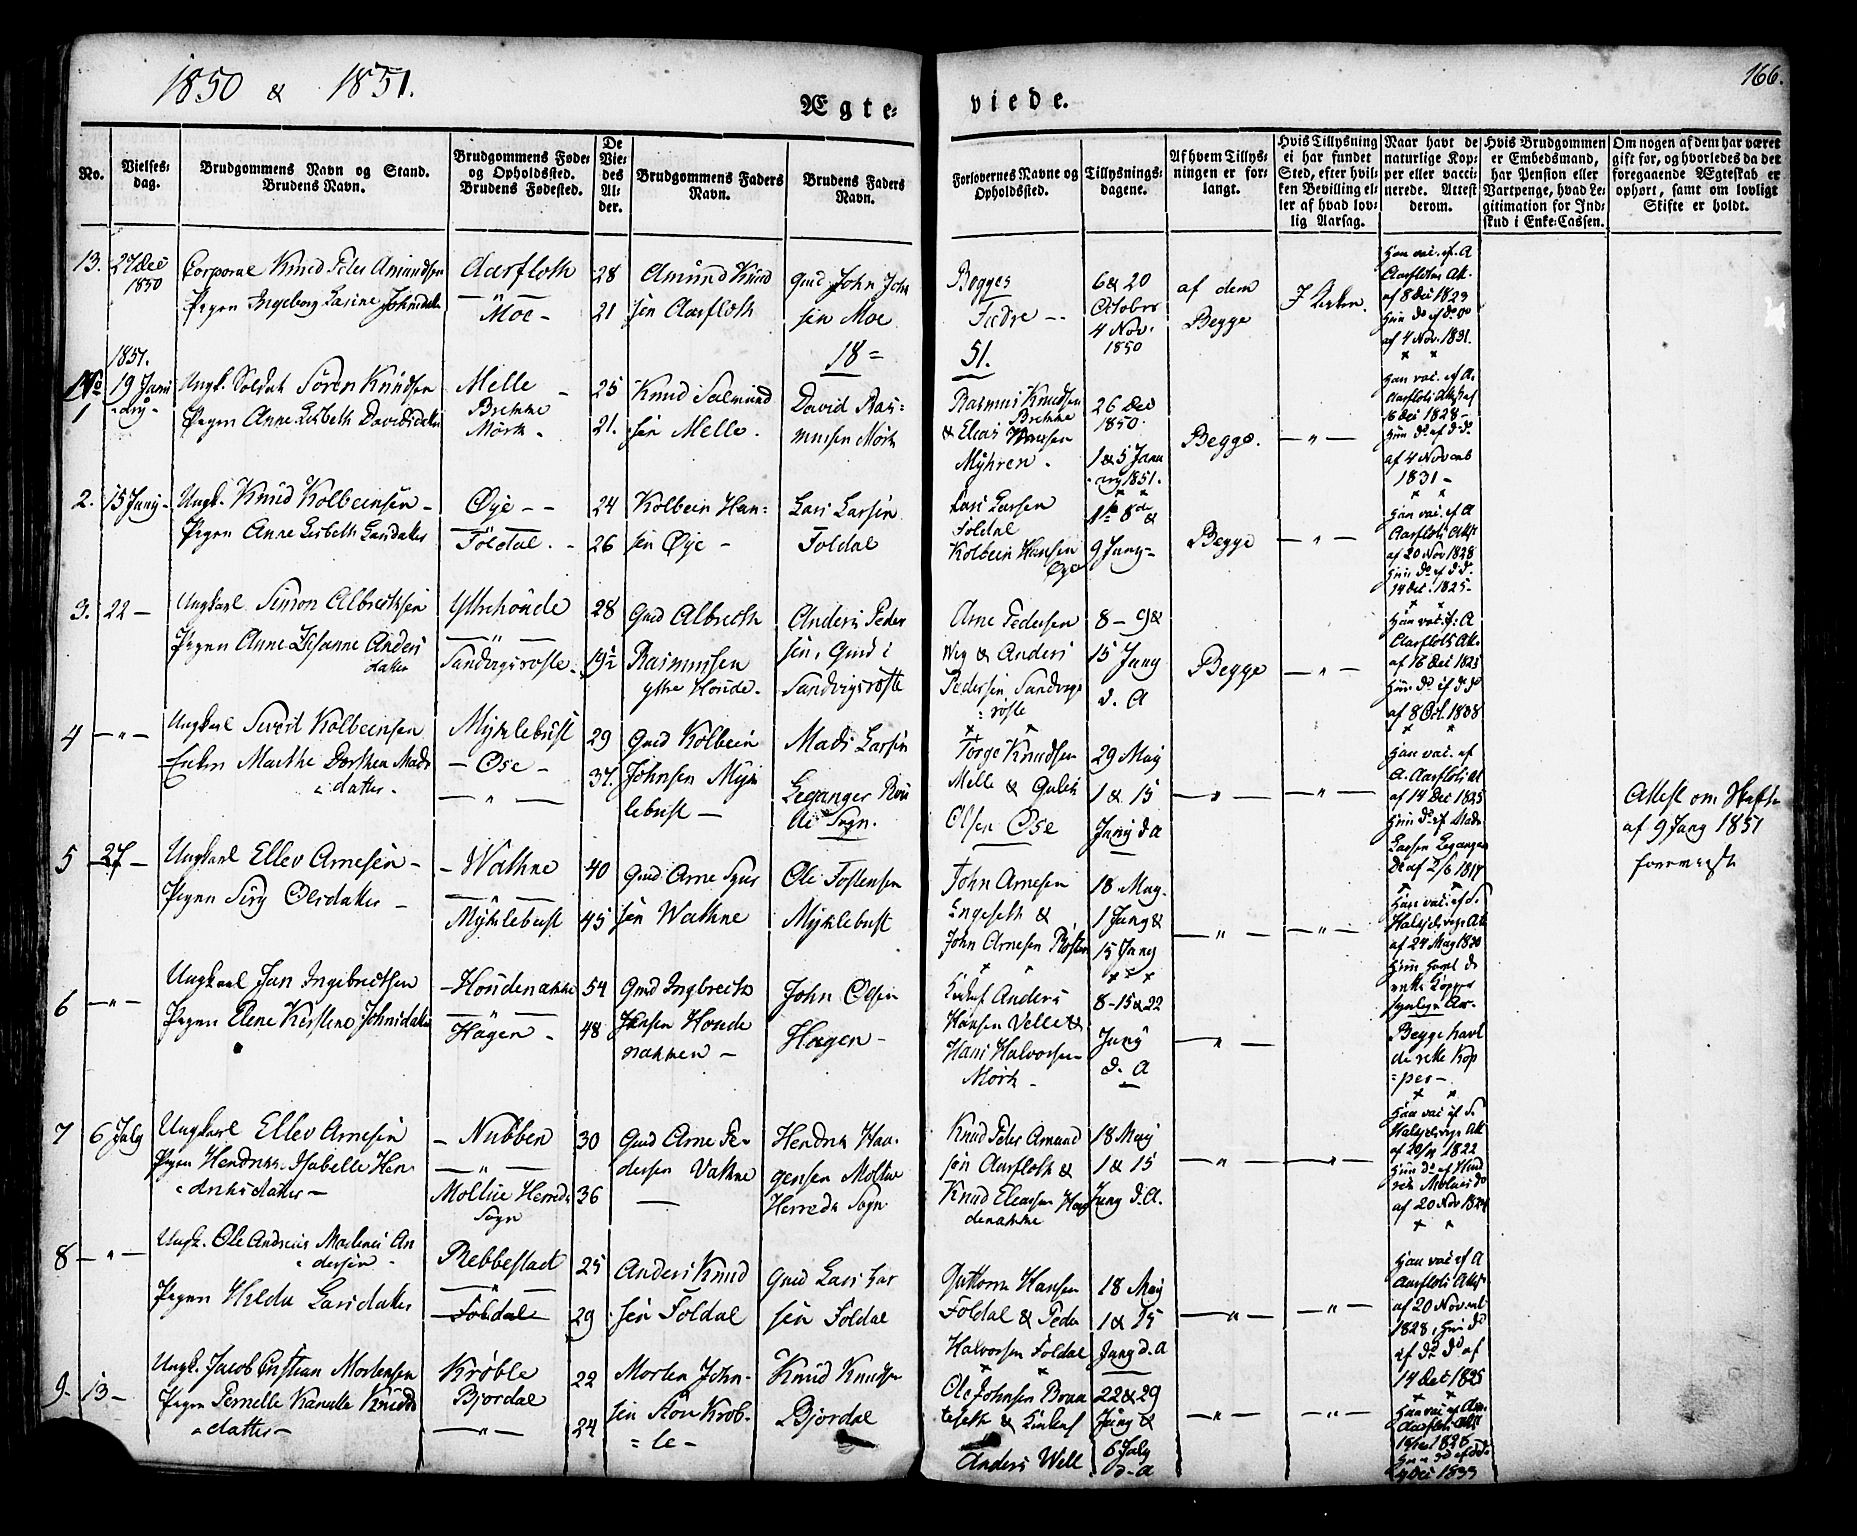 1850 & 1851.
166.
Ægte=
viede.
No.
Vielses=
dag.
Brudgommens Navn og Stand.
Brudens Navn.
Brudgommens Føde=
og Opholdssted.
Brudens Fødested.
De
Vie=
des
Al=
der.
Brudgommens Faders
Navn.
Brudens Faders
Navn.
Forlovernes Navne og
Opholdssted.
Tillysnings=
dagene.
Af hvem Tillys=
ningen er for=
langt.
Hvis Tillysning
ei har fundet
Sted, efter hvil=
ken Bevilling el=
ler af hvad lov=
lig Aarsag.
Naar havt de
naturlige Kop=
per eller vacci=
nerede. Attest
derom.
Hvis Brudgommen
er Embedsmand,
har Pension eller
Vartpenge, hvad Le=
gitimation for Ind=
skud i Enke=Cassen.
Om nogen af dem har været
gift for, og hvorledes da det
foregaaende Ægteskab er
ophørt, samt om lovligt
Skifte er holdt.
13.
27 Dec
1850
Corporal Knud Peter Amundsen
Pigen Ingeborg Lasine Johnsdatter
Aarfloth
— " —
Moe -
28
21
Amund Knud
sen Aarfloth
Gmd John John
sen Moe
Begges
Fædre --
6 & 20
October
4 Nov.
1850
af dem
Begge
I Kirken.
Han vac. ef. A
Aarfloths Att.
af 8 Dec 1829
Hun do ef do
af 4 Nov. 1831.
1851.
18=
51.
No
1
19 Janu
ary-
Ungk. Soldat Søren Knudsen
Pigen Anne Lisbeth Davidsdatter
Melle -
Brekke
Mørk -
25
21.
Knud Salmund
sen Melle.
David Ras=
mussen Mørk
Rasmus Knudsen
Brekke
& Elias Knudsen
Myhren.
26 Dec
1850.
1 & 5 Janu
ary 1851.
Begge.
— " —
Han vac. ef A.
Aarfloths Attest af
16 Dec 1828 -
Hun do af d. do
af 4 Novemb
1831 -
2.
15 Juny -
Ungk. Knud Kolbeinsen -
Pigen Anne Lisbeth Larsdatter
Øye - -
Foldal. -
24
26
Kolbein Han=
sen Øye -
Lars Larsen
Foldal
Lars Larsen
Foldal
Kolbein Hansen
Øye
1te 8de &
9 Juny -
Begge
— " —
Han vac. ef A
Aarfloths Attst
af 20 Nov 1828
Hun do ef d. do.
14 Dec. 1825 -
3.
22 —
Ungkarl Simon Albrethsen
Pigen Anne Susanne Anders
datter
Yttrehoude
— " —
Sandvigsrøste.
28
19½
Gmd Albreth
Rasmussen
yttre Houde.
Anders Peder
sen, Gmd i
Sandvigsrøste
Arne Pedersen
Weg & Anders
Pedersen Sandvigs
=røste
8 - 9 &
15 Juny
d. A
Begge
— " —
Han vac. ef. A
Aarfloths Att.
af 16 Dec 1823
Hun do ef d do
af 8 Oct. 1838
4
— " —
Ungkarl Sivert Kolbeinsen
Enken Marthe Dorthea Mads
=datter -
Myklebust
- Ose -
— " —
29
37.
Gmd Kolbein
Johnsen Myk
lebust —
Mads Larsen
Leganger
de Sogn.
Torge Knudsen
Melle &
Olsen Ose
29 May
1 & 15
Juny d. A
— " —
— " —
Han vac. ef
A. Aarfloths At
af 14 Dec 1825
Hun do ef Mads
Larsen Leganger
af 2/6 1817
Attest om Skifte
af 9 Juny 1851
foreviist
5
27 —
Ungkarl Ellev Arnesen -
Pigen Siry Olesdatter -
- Wathne
— " —
Myklebust
40
45
Gmd Arne
sen Wathne
Ole Tostensen
Myklebust
John Arnesen
Engeseth &
John Arnesen
18 May.
1 Juny &
15 Juny
— " —
— " —
Han vac. ef
af 24 May 1820
Hun havt de
rette Kopper
synlige Ar.
6
— " —
Ungkarl Jan Ingebrethsen
Pigen Elene Kirstine Johnsdatter
- Houdenakke
— " —
Hagen -
54
48
Gmd Ingbreth
Jansen Houde
nakken —
John Olsen
Hagen -
Anders
Hansen Velle &
Hans Halvorsen
Mørk -
8 - 15 & 22
Juny
d. A
— " —
Begge havt
de rette Kop
=per -
7
6 July
Ungkarl Ellev Arnesen
Pigen Hendrikke Isabelle Hen=
=driksdatter —
- Nubben
— " —
Molne Herrøe
Sogn
30
36
Gmd Arne Pe=
dersen Vatne
—
Hendrik Haa=
gensen
Herrøe Sogn
Knud Peter Amund
sen Aarfloth &
Knud Eliassen Hou
denakke
18 May
1 & 15
Juny d. A.
— " —
— " —
Han vac ef
1822
Hun do af Hend
af 20 Nov 1824
8
— " —
Ungk. Ole Andreas Martinus An
=dersen -
Pigen Hilda Larsdatter
Rebbestad
— " —
Foldal
25
29
Anders Knud
sen Foldal
Gmd Lars Lar
sen Foldal
Guttorm Hansen
Foldal & Peder
Halvorsen Foldal
18 May
1 & 15
Juny d. A
— " —
— " —
Han vac ef A
Aarfloths Attst
af 20 Novemb
1828, Hun do
ef do do af
14 Dec 1825
9.
13 —
Ungk. Jacob Cristian Mortensen
Pigen Pernelle Kanutte Knuds
=datter —
Krøble
Bjordal
— " —
22
24
Morten John=
sen Krøb=
=le -
Knud Knudsen
Bjordal
Ole Johnsen Bran
teseth &
Anders Well
22 & 29
Juny &
6 July
d. A
— " —
— " —
Han vac ef Am.
Aarfloths Attst
1826
Hun do ef d do
4 Dec 1833